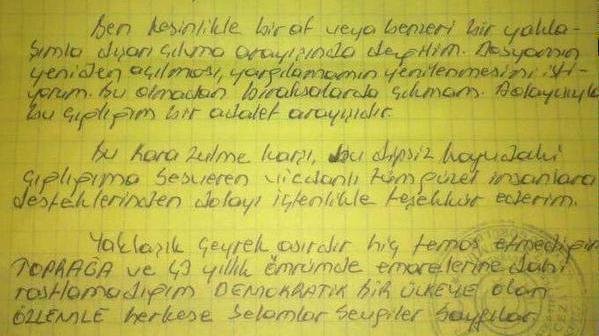 Ben kesinlikle bir af veya benzeri bir yakla-
şımla dışarı çıkma arayışında değilim. Dosyamın
yeniden açılması, yargılamamın yenilenmesini isti-
yorum. Bu olmadan bıraksalarda çıkmam. Dolayısıyla
bu çığlığım bir adalet arayışıdır.
Bu kara zulme karşı, bu dipsiz kuyudaki
çığlığıma sesveren vicdanlı tüm güzel insanlara
desteklerinden dolayı içtenlikle teşekkür ederim.
Yaklaşık çeyrek asırdır hiç temas etmediğim
TOPRAĞA ve 43 yıllık ömrümde emarelerine dahi
rastlamadığım DEMOKRATİK BİR ÜLKEYE olan
ÖZLEMLE herkese Selamlar Sevgiler Saygılar